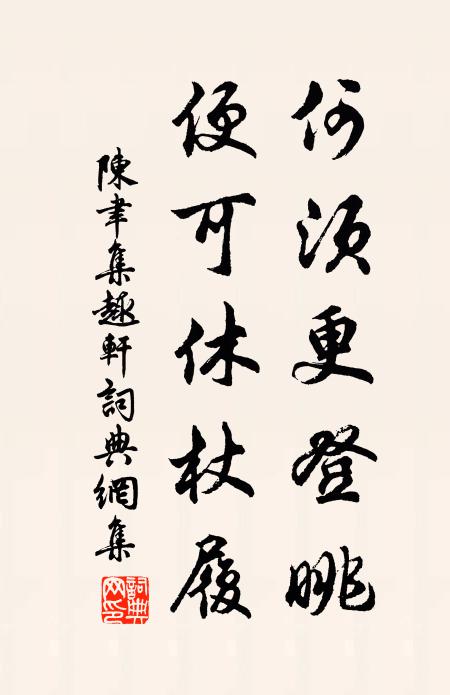 何須更登眺
便可休杖履
陳聿集趣軒詞典網集
詞典網印